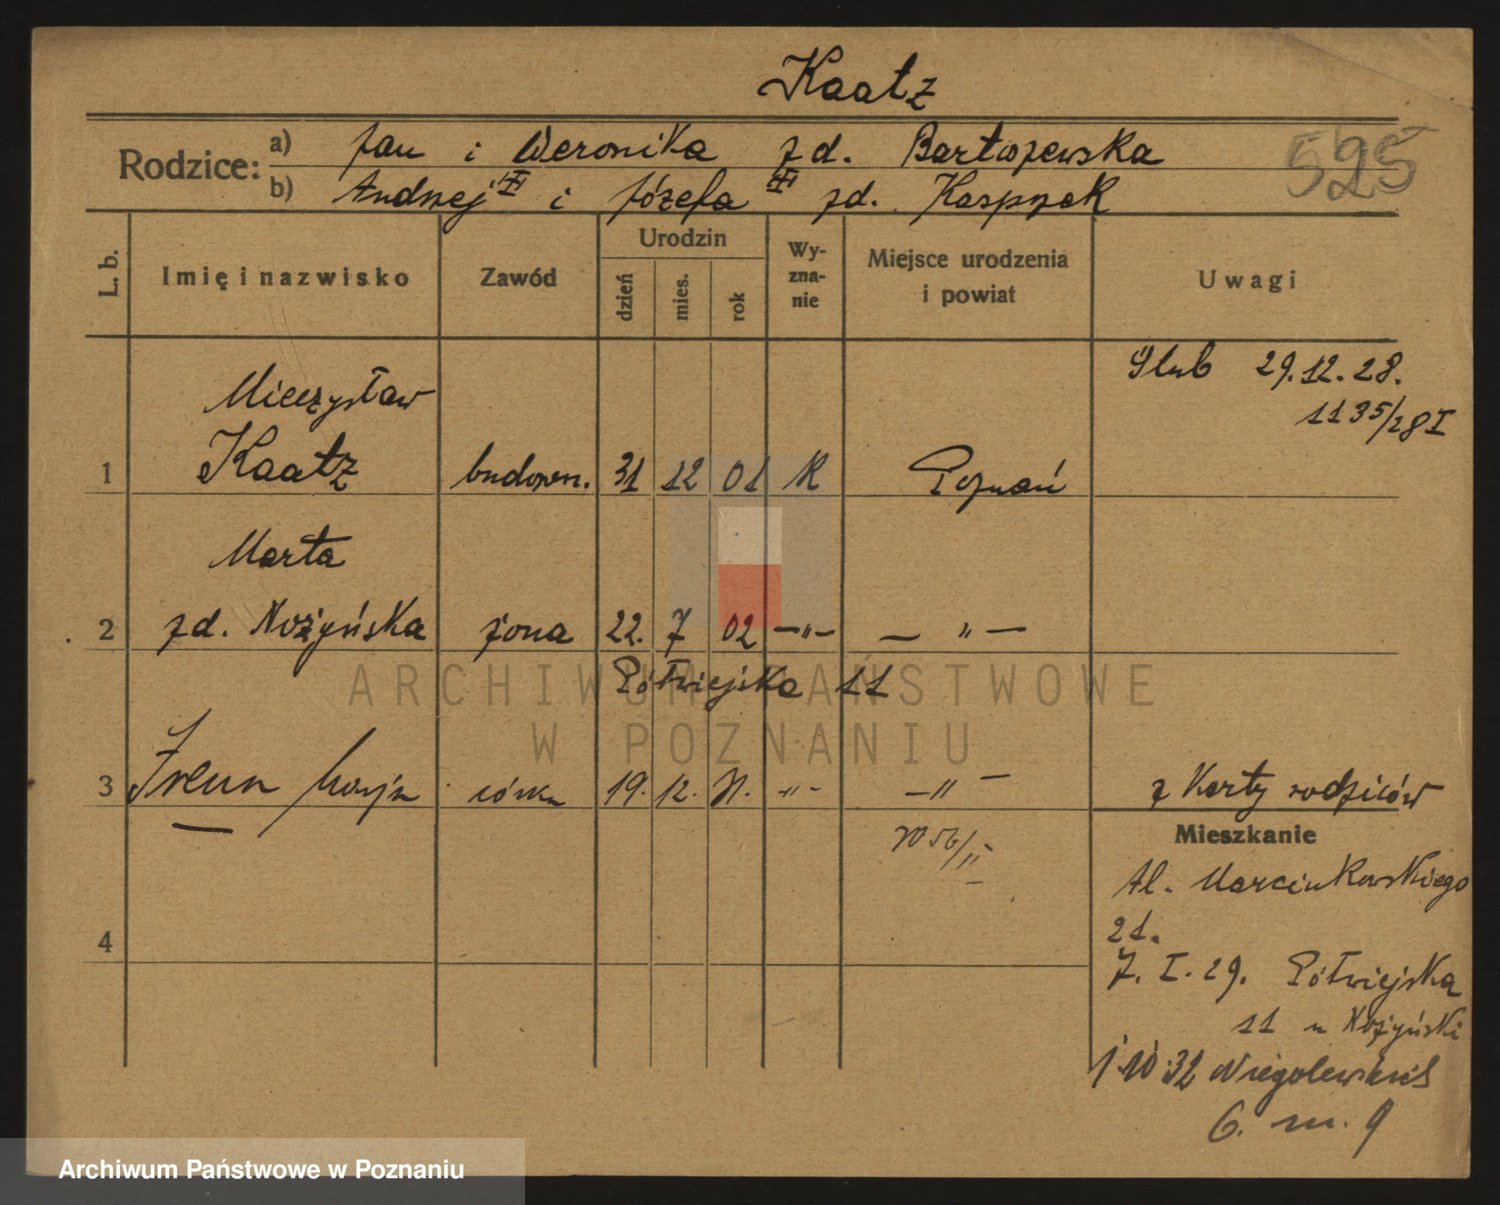 Kaatz
525
Rodzice: a) Jan i Weronika zd. Bartoszewska
b) Andrzej i Józefa zd. Kasprzak
L. b.
Imię i nazwisko
Zawód
Urodzin
dzień
mies.
rok
Wy-
zna-
nie
Miejsce urodzenia
i powiat
Uwagi
Ślub 29.12.28.
1135/28 I
Mieczysław
1 Kaatz budown. 31 12 01 K Poznań
Marta
2 zd. Nożyńska żona 22. 7 02 — " — — " —
Półwiejska 11
3 Irena Maria córka 19. 12. 31. - " - — " — z Karty rodziców
Mieszkanie
Al. Marcinkowskiego
21.
4
7. I. 29. Półwiejska
11 u Nożyński
1 10 32 Niegolewskich
6. m. 9
ARCHIWUM PAŃSTWOWE
W POZNANIU
Archiwum Państwowe w Poznaniu